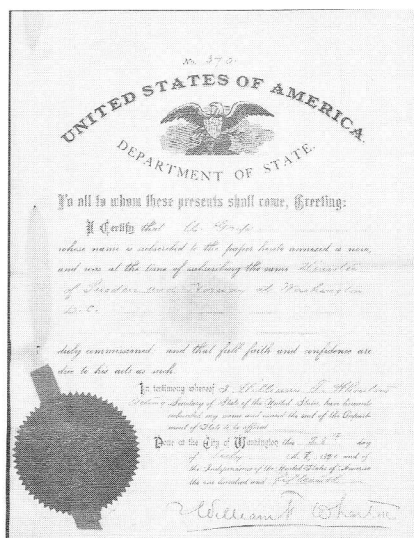 UNITED STATES OF AMERICA.
DEPARTMENT OF STATE.
To all to whom these presents shall come, Greeting:
I Certify that
whose name is subscribed to the paper hereto annexed is now,
and was at the time of subscribing the same Minister
of Sweden and Norway at Washington
D.C.
duly commissioned and that full faith and confidence are
due to his acts as such
In testimony whereof I William F. Wharton
Acting Secretary of State of the United States, have hereunto
subscribed my name and caused the seal of the Depart-
ment of State to be affixed
Done at the City of Washington this day
of July A.D. 1890 and of
the Independence of the United States of America
the one hundred and fifteenth
William F Wharton